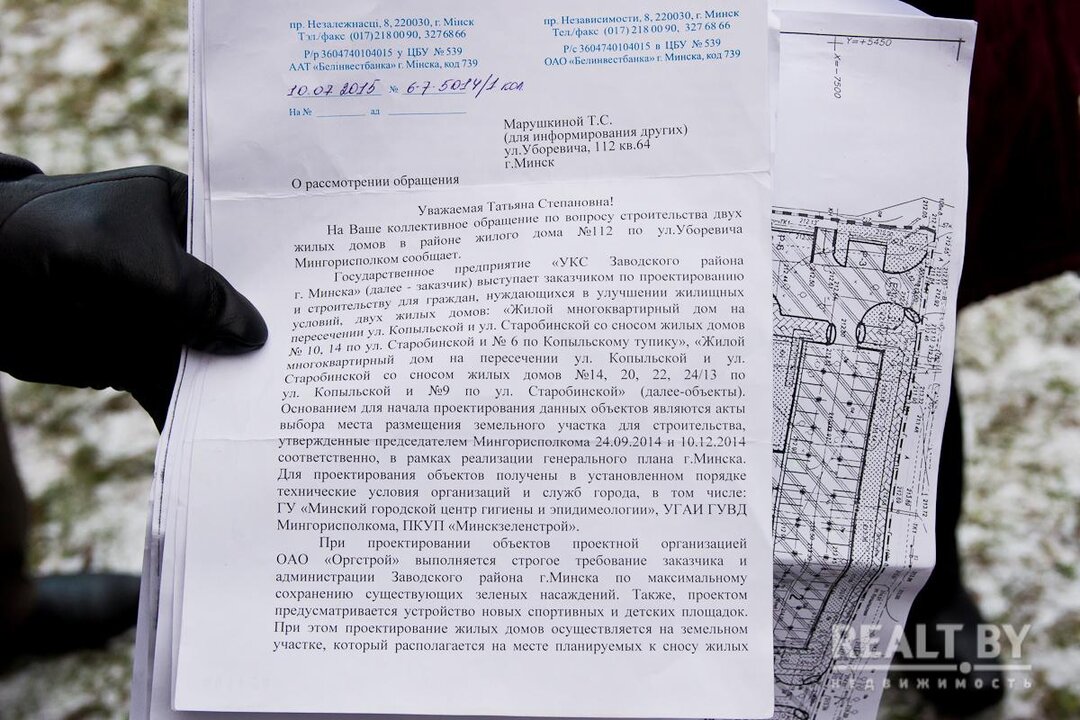 пр. Незалежнасці, 8, 220030, г. Мінск
Тэл./факс (017) 218 00 90, 327 68 66
Р/р 3604740104015 у ЦБУ № 539
ААТ «Белінвестбанка» г. Мінска, код 739
пр. Независимости, 8, 220030, г. Минск
Тел./факс (017) 218 00 90, 327 68 66
Р/с 3604740104015 в ЦБУ № 539
ОАО «Белинвестбанка» г. Минска, код 739
10.07.2015 № 6-7-5014/1 кол
На № ад
Марушкиной Т.С.
(для информирования других)
ул.Уборевича, 112 кв.64
г.Минск
О рассмотрении обращения
Уважаемая Татьяна Степановна!
На Ваше коллективное обращение по вопросу строительства двух
жилых домов в районе жилого дома №112 по ул.Уборевича
Мингорисполком сообщает.
Государственное предприятие «УКС Заводского района
г. Минска» (далее - заказчик) выступает заказчиком по проектированию
и строительству для граждан, нуждающихся в улучшении жилищных
условий, двух жилых домов: «Жилой многоквартирный дом на
пересечении ул. Копыльской и ул. Старобинской со сносом жилых домов
№ 10, 14 по ул. Старобинской и № 6 по Копыльскому тупику», «Жилой
многоквартирный дом на пересечении ул. Копыльской и ул.
Старобинской со сносом жилых домов №14, 20, 22, 24/13 по
ул. Копыльской и №9 по ул. Старобинской» (далее-объекты).
Основанием для начала проектирования данных объектов являются акты
выбора места размещения земельного участка для строительства,
утвержденные председателем Мингорисполкома 24.09.2014 и 10.12.2014
соответственно, в рамках реализации генерального плана г.Минска.
Для проектирования объектов получены в установленном порядке
технические условия организаций и служб города, в том числе:
ГУ «Минский городской центр гигиены и эпидимеологии», УГАИ ГУВД
Мингорисполкома, ПКУП «Минскзеленстрой».
При проектировании объектов проектной организацией
ОАО «Оргстрой» выполняется строгое требование заказчика и
администрации Заводского района г.Минска по максимальному
сохранению существующих зеленых насаждений. Также, проектом
предусматривается устройство новых спортивных и детских площадок.
При этом проектирование жилых домов осуществляется на земельном
участке, который располагается на месте планируемых к сносу жилых
Y=+5450
X=-7500
REALT.BY
недвижимость